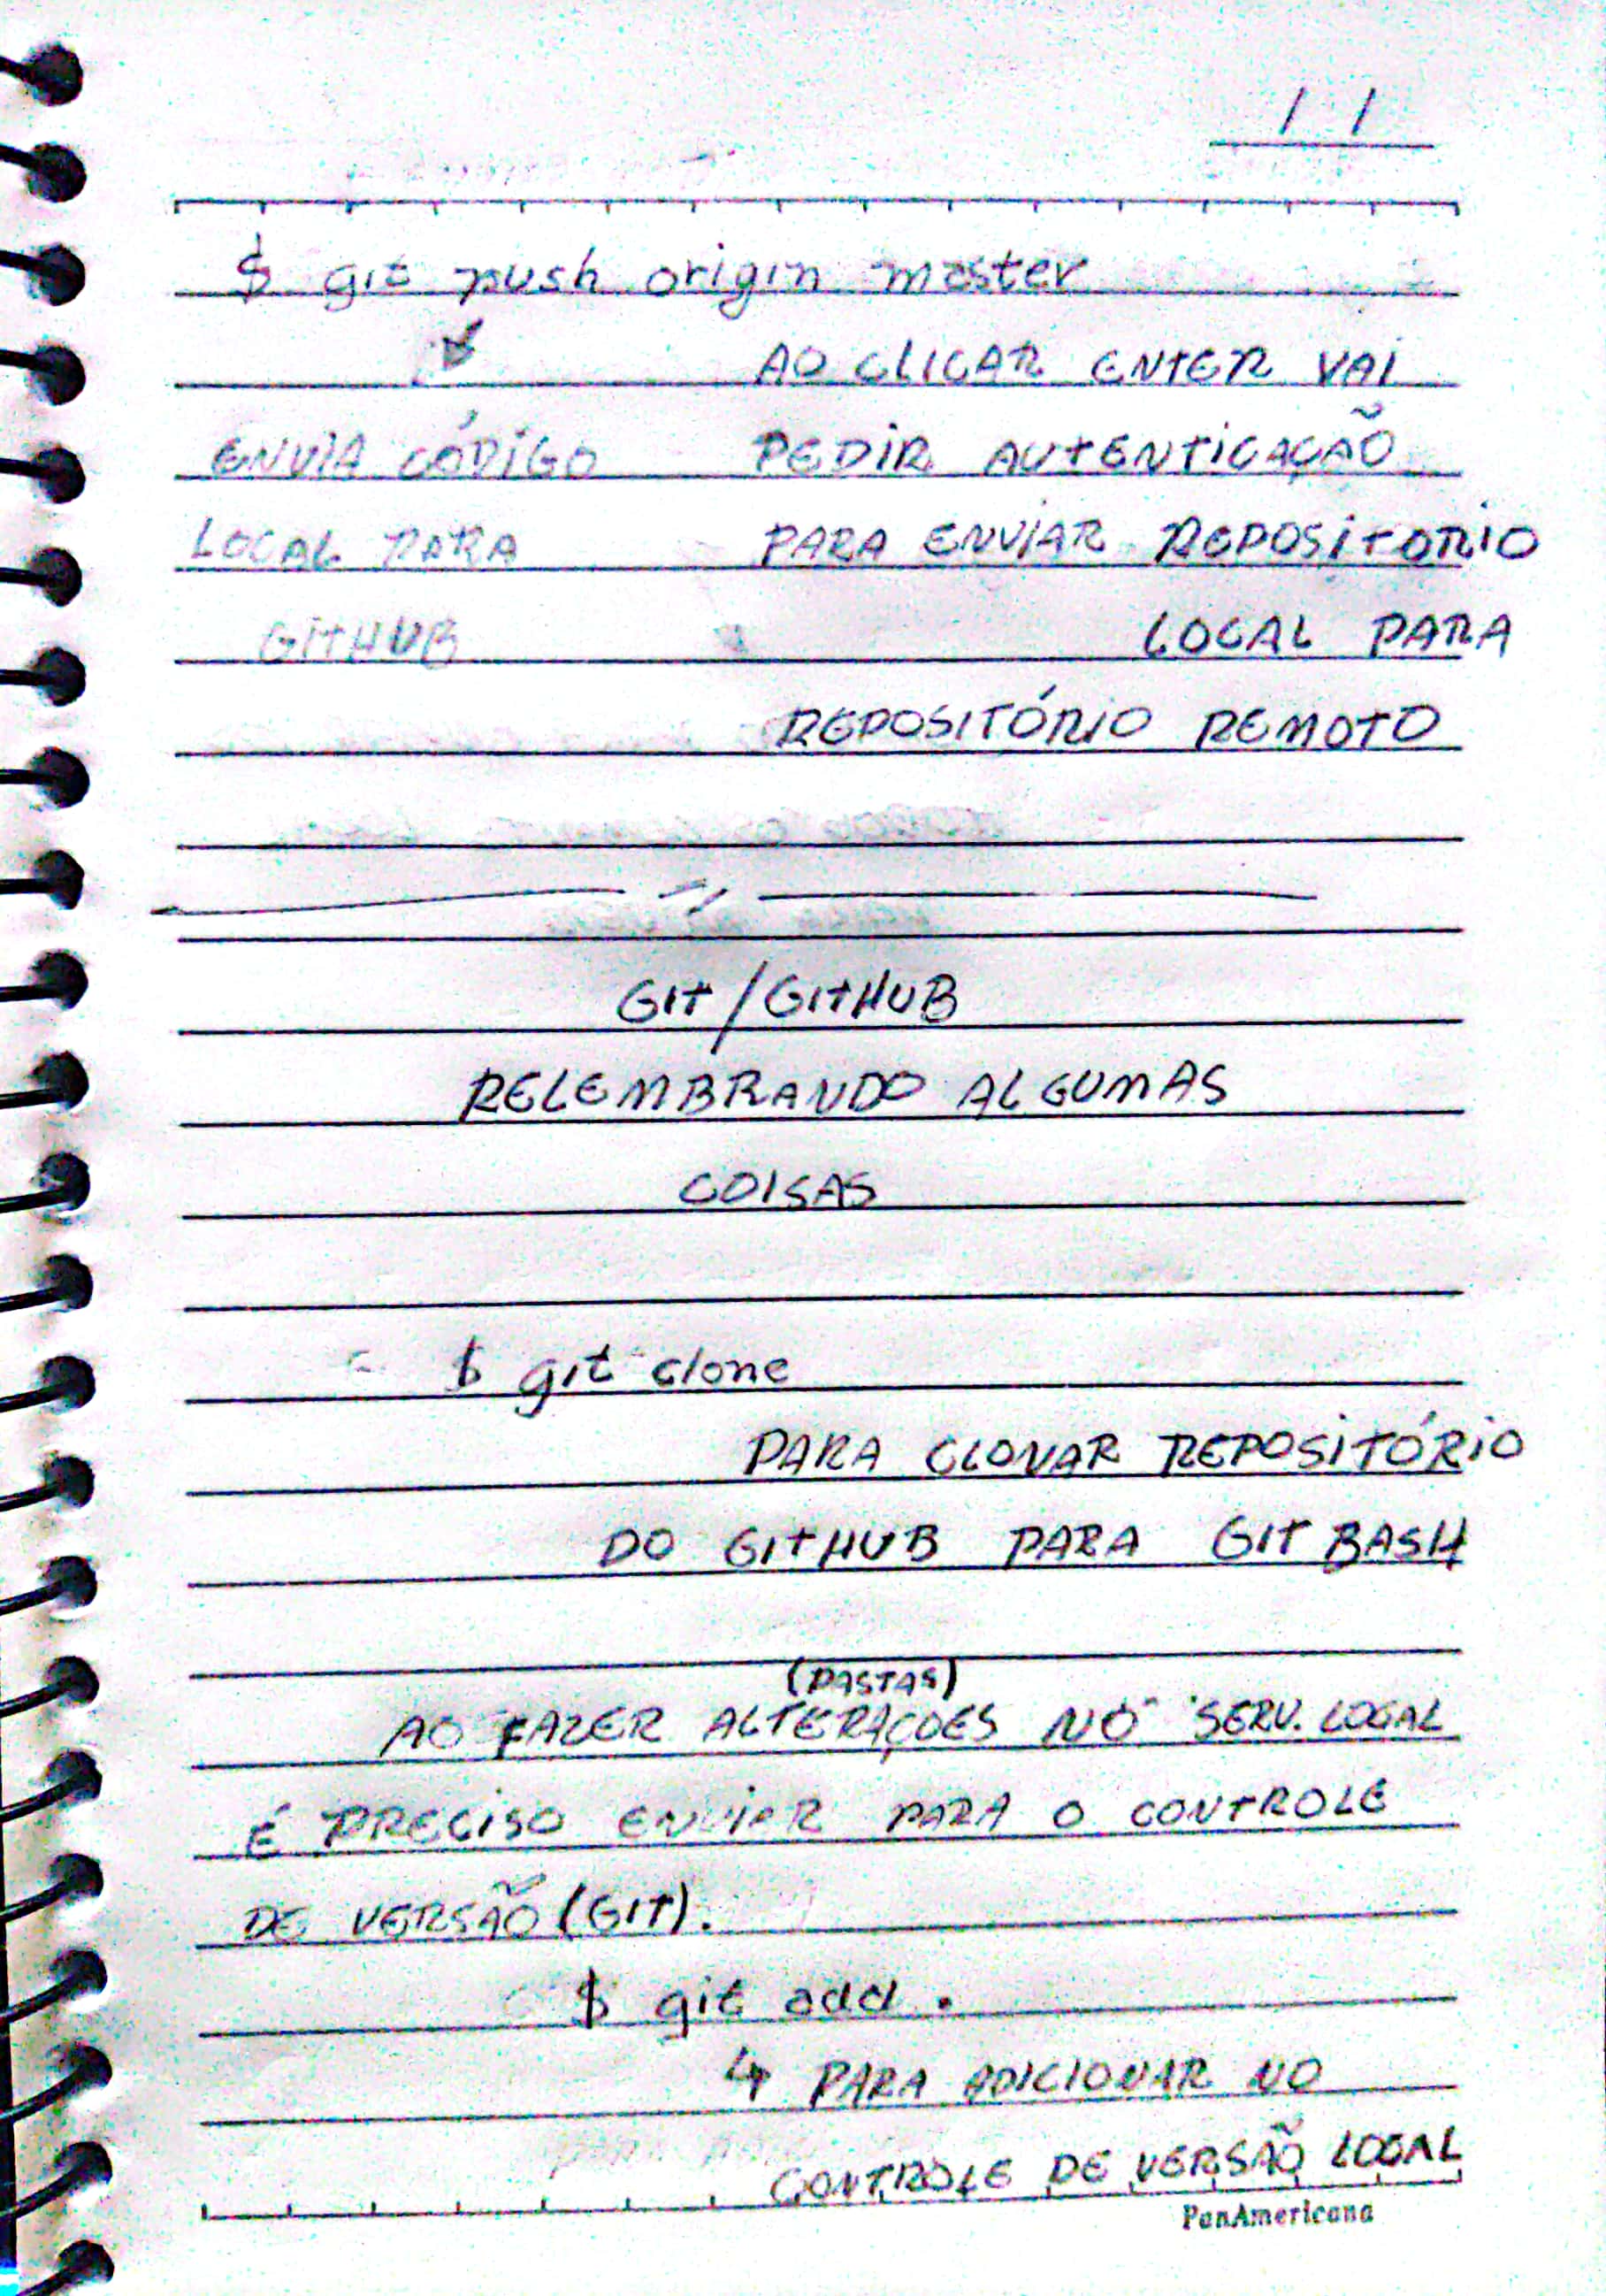 / /
$ git push origin master
AO CLICAR ENTER VAI
ENVIA CÓDIGO PEDIR AUTENTICAÇÃO
LOCAL PARA PARA ENVIAR REPOSITORIO
GITHUB LOCAL PARA
REPOSITÓRIO REMOTO
GIT/GITHUB
RELEMBRANDO ALGUMAS
COISAS
$ git clone
PARA CLONAR REPOSITÓRIO
DO GITHUB PARA GIT BASH
(PASTAS)
AO FAZER ALTERAÇOES NO SERV. LOCAL
É PRECISO ENVIAR PARA O CONTROLE
DE VERSÃO (GIT).
$ git add .
↳ PARA ADICIONAR NO
CONTROLE DE VERSÃO LOCAL
PanAmericana